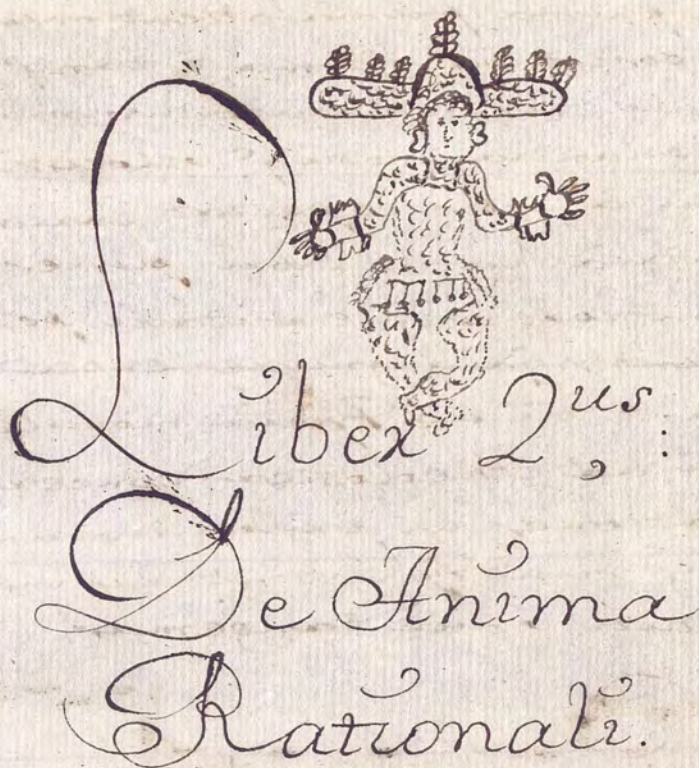 Liber 2us:
De Anima
Rationali.